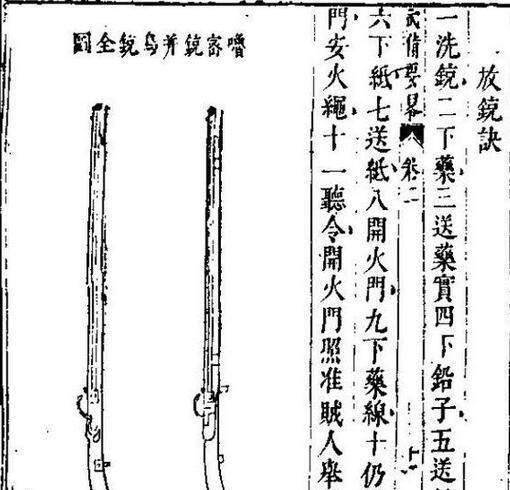 放銃訣
一洗銃二下藥三送藥實四下鉛子五送
武備要畧 卷二
六下紙七送紙八開火門九下藥線十仍
門安火繩十一聽令開火門照准賊人舉
嚕密銃并鳥銃全圖